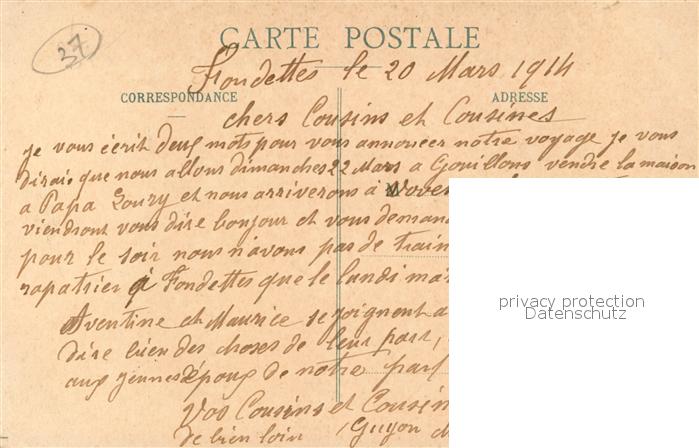 37
CARTE POSTALE
Fondettes le 20 Mars 1914
CORRESPONDANCE
ADRESSE
chers Cousins et Cousines
je vous écrit deux mots pour vous annoncer notre voyage je vous
dirais que nous allons dimanches 22 Mars a Gouillons vendre la maison
a Papa Loury et nous arriverons a
viendront vous dire bonjour et vous
pour le soir nous n'avons pas de train
rapatrier à Fondettes que le lundi
Aventine et Maurice se joignent a
dire bien des choses de leur part,
aux jeunes époux de notre part
privacy protection
Datenschutz
Vos Cousins et Cousin
de bien loin Guyon